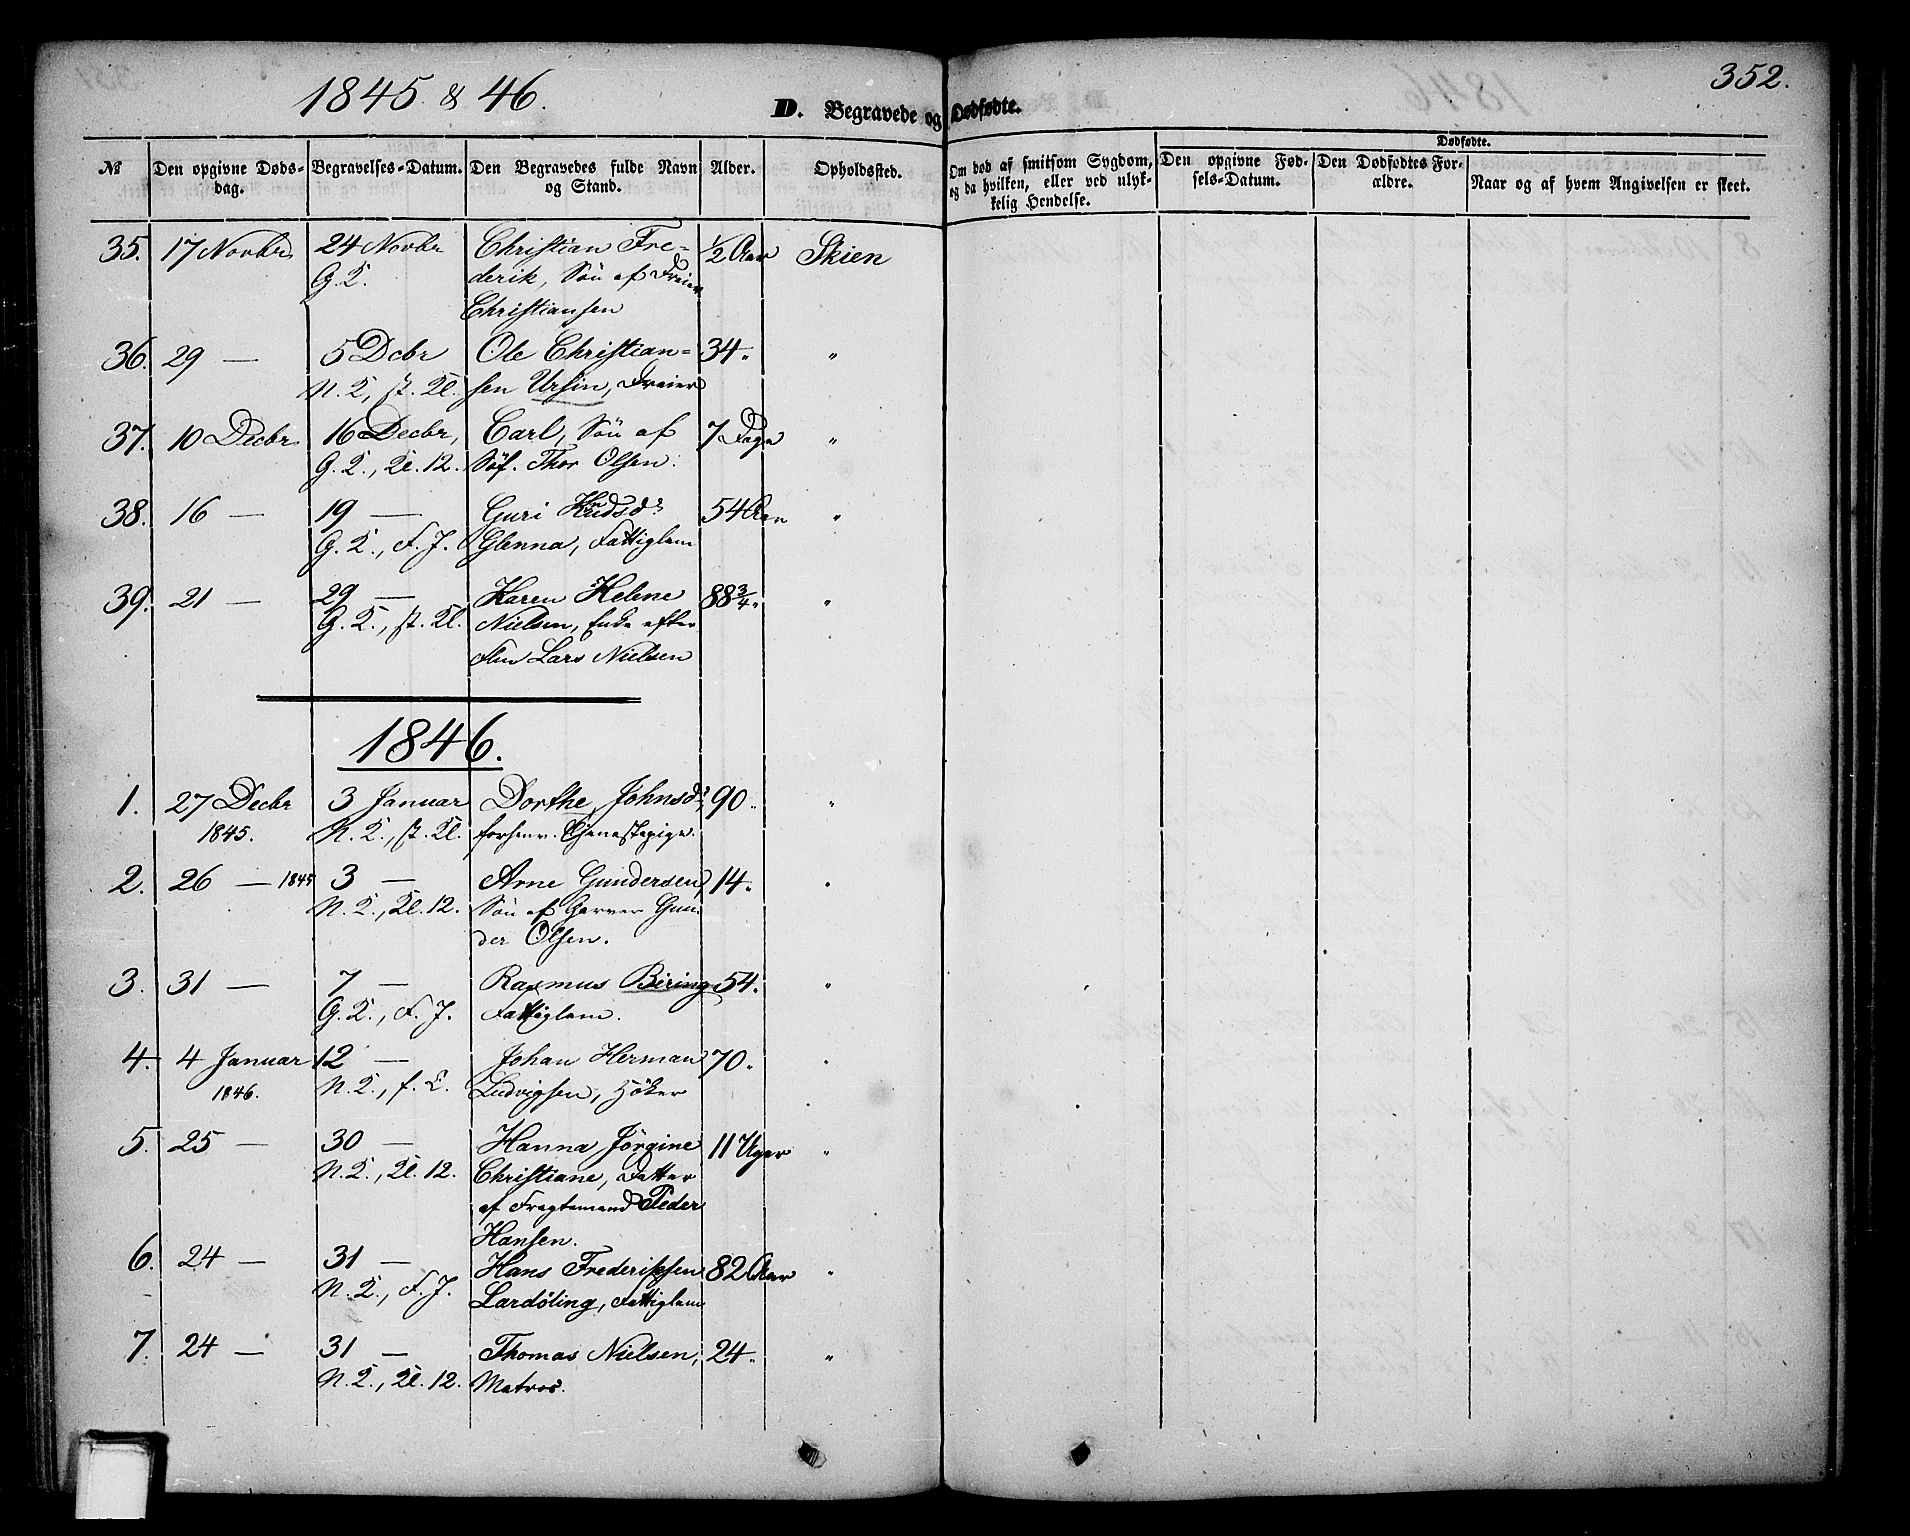 1845 & 46.
352.
D. Begravede og Dødfødte.
№
Den opgivne Døds-
dag.
Begravelses-Datum.
Den Begravedes fulde Navn
og Stand.
Alder.
Opholdssted.
Om død af smitsom Sygdom,
og da hvilken, eller ved ulyk-
kelig Hendelse.
Dødfødte.
Den opgivne Fød-
sels-Datum.
Den Dødfødtes For-
ældre.
Naar og af hvem Angivelsen er skeet.
35. 17 Novbr 24 Novbr Christian Fre- ½ Aar Skien
G. K. derik, Søn af Dreier
Christiansen
36. 29 — 5 Dcbr Ole Christian- 34 " "
N. K., st. Kl. sen Ursin, Dreier
37. 10 Decbr 16 Decbr, Carl, Søn af 7 Dage "
G. K., Kl. 12. Søf. Thor Olsen.
38. 16 — 19 — Guri Knudsd: 54 Aar "
G. K., F. J. Glenna, Fattiglem
39. 21 — 29 — Karen Helene 88¾ " "
G. K., st. Kl. Nielsen, Enke efter
Lars Nielsen
1846.
1. 27 Decbr 3 Januar Dorthe Johnsd:, 90 " "
1845. N. K., st. Kl. forhenv. Tjenestepige.
2. 26 — 1845 3 — Arne Gundersen, 14 " "
N. K., Kl. 12. Søn af Garver Gun-
der Olsen.
3. 31 — 7 — Rasmus Biering, 54 " "
G. K., F. J. Fattiglem.
4. 4 Januar 12 — Johan Herman 70 " "
1846. N. K., f. L. Ludvigsen, Høker
5. 25 — 30 — Hanna Jørgine 11 Uger "
N. K., Kl. 12. Christiane, Datter
af Fragtemand Peder
Hansen.
6. 24 — 31 — Hans Frederiksen 82 Aar "
N. K., F. J. Lardøling, Fattiglem
7. 24 — 31 — Thomas Nielsen, 24 " "
N. K., Kl. 12. Matros.